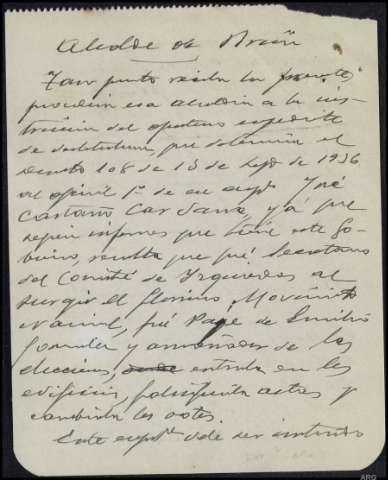 Alcalde de Brión
Tan pronto reciba la presente
procederá esa Alcaldía a la ins-
trucción del oportuno expediente
de destitución que determina el
Decreto 108 de 13 de Sept de 1936
al oficial 1º de ese José
Castaño Cardama, ya que
según informes que tiene este Go-
bierno, resulta que fué Secretario
del Comité de Izquierdas al
surgir el glorioso Movimiento
fué de Emilio
González y amañador de las
elecciones, entraba en los
edificios, falsificaba actas y
cambiaba los votos.
Este expte debe ser instruido
ARG